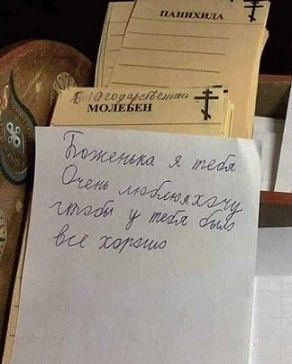 ПАНИХИДА
Благодарственный
МОЛЕБЕН
Боженька я тебя
Очень люблю я хочу
чтобы у тебя было
всё хорошо